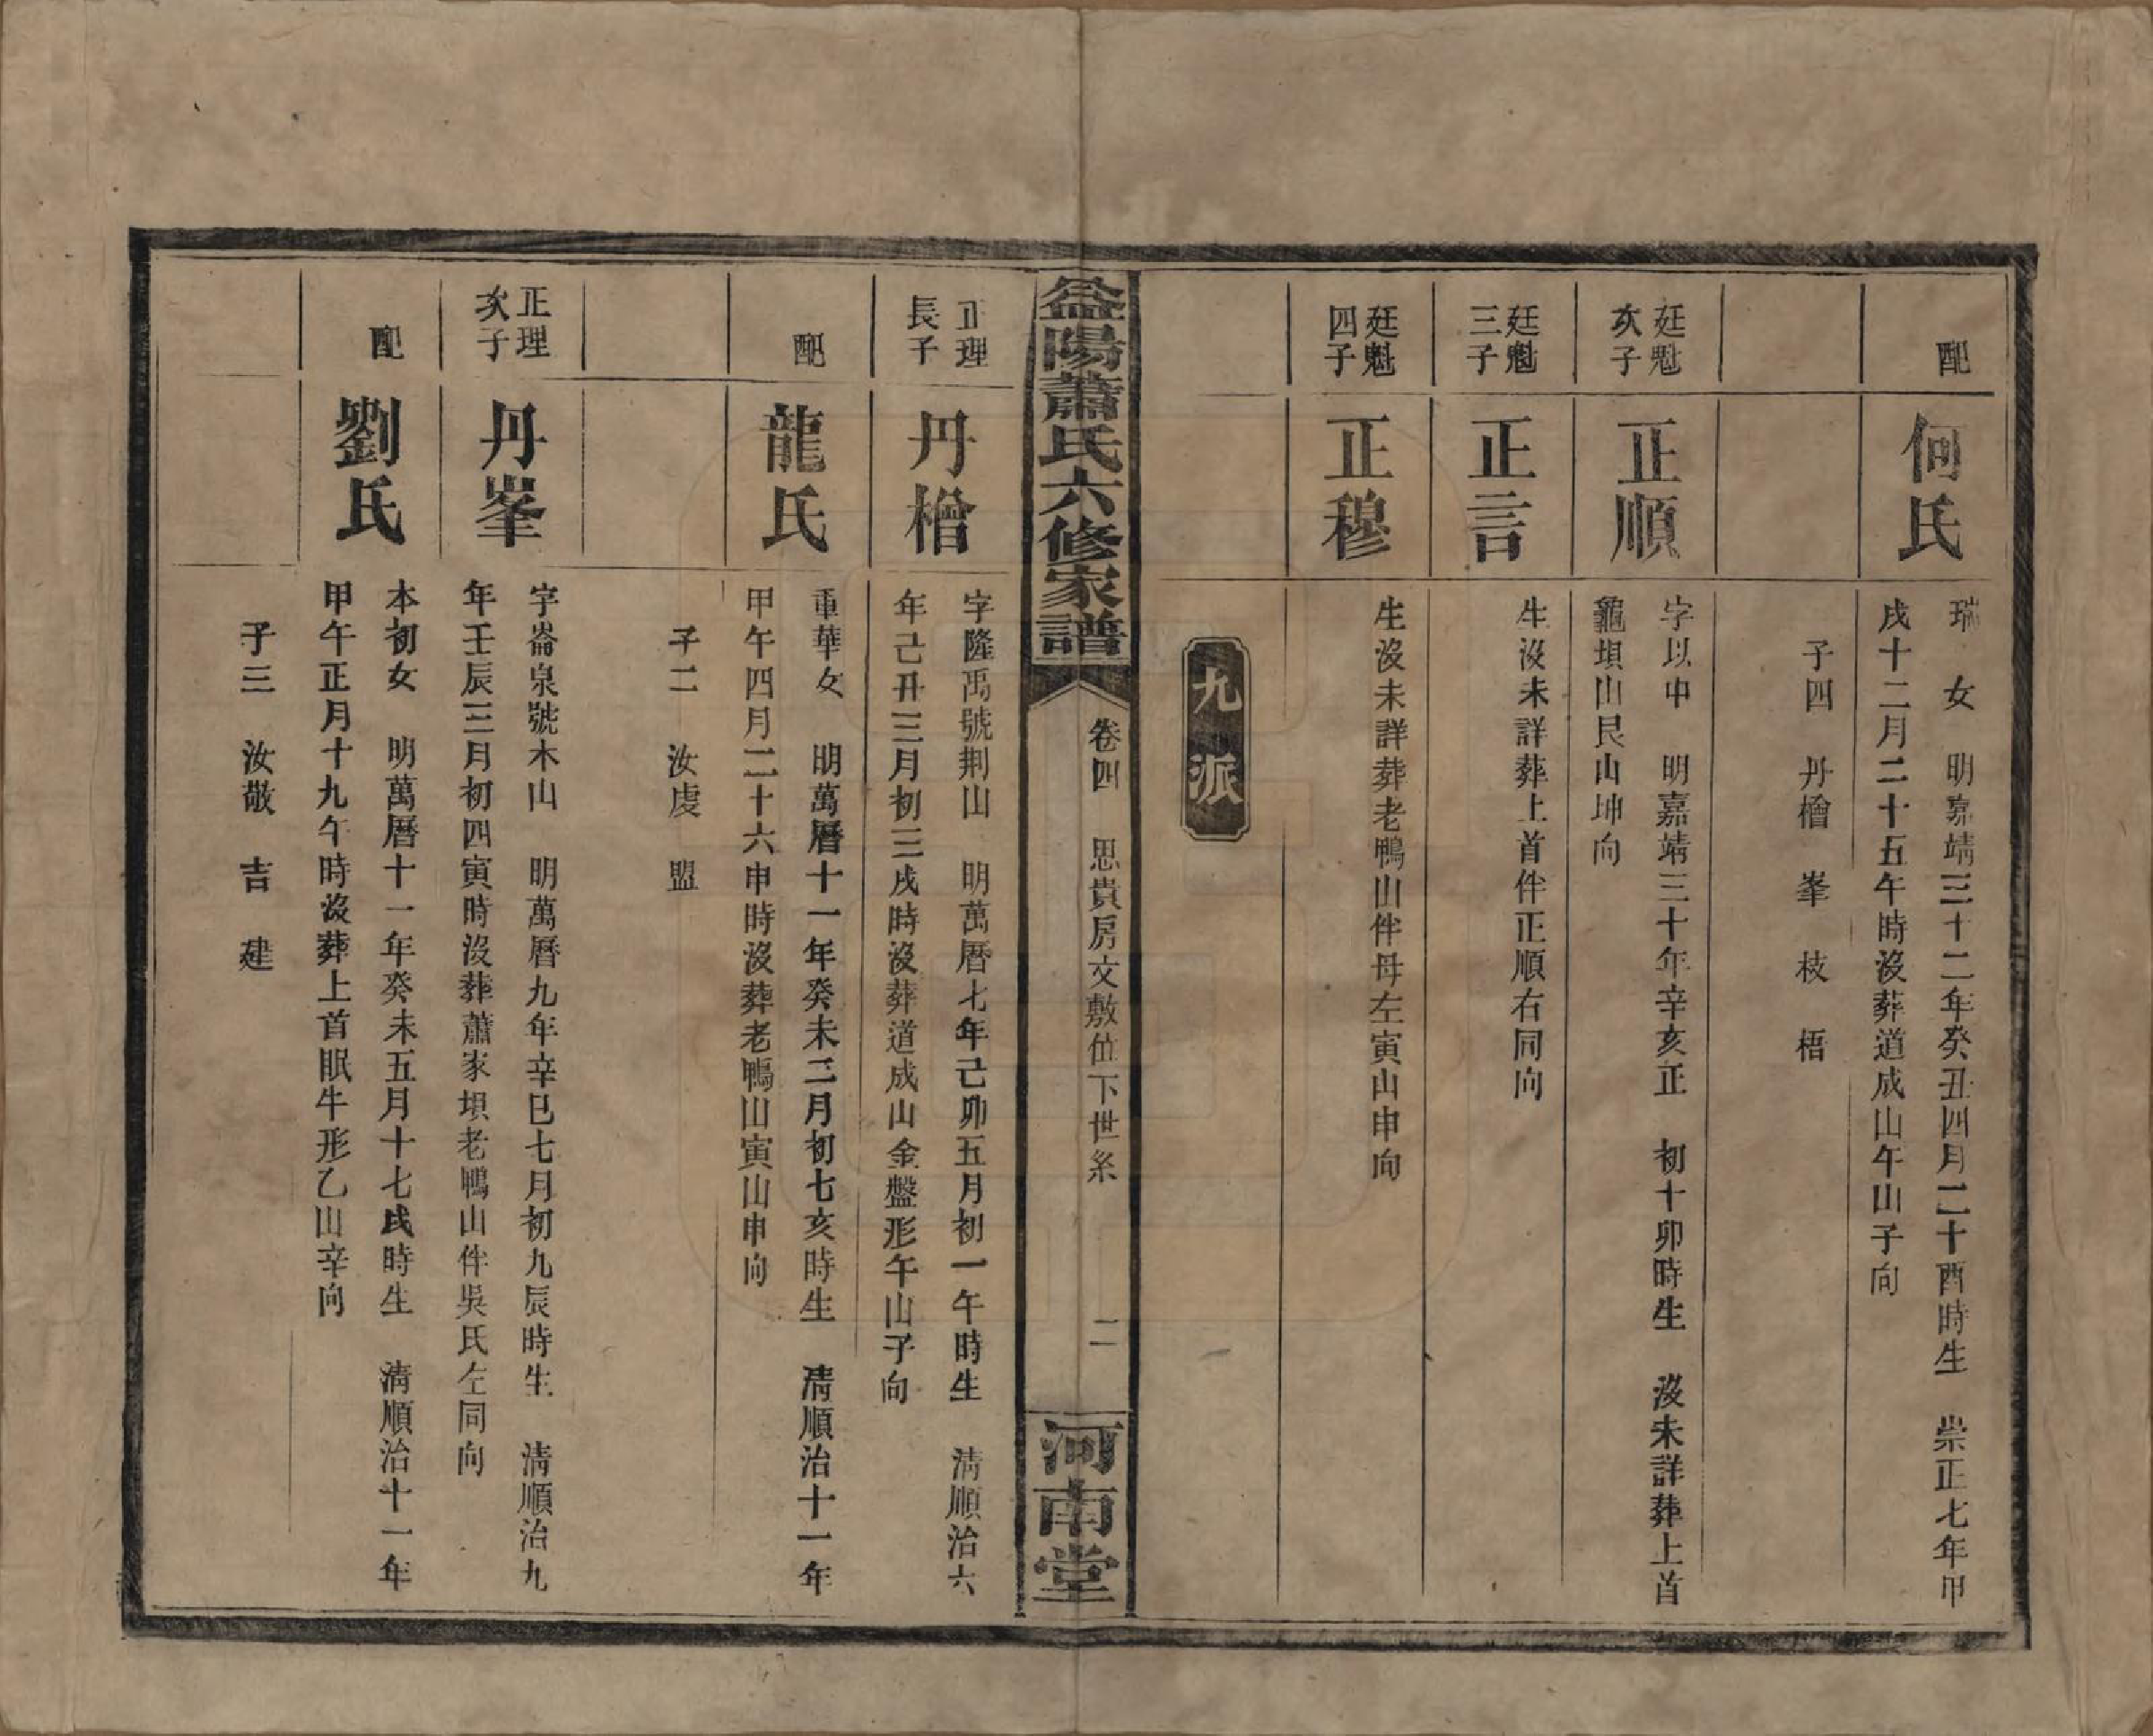 配
何氏
瑞女　明嘉靖三十二年癸丑四月二十酉時生　崇正七年甲
戌十二月二十五午時沒葬道成山午山子向
子四　丹檜　峯　枝　梧
廷魁
次子
正順
字以中　明嘉靖三十年辛亥正　初十卯時生　沒未詳葬上首
龜垻山艮山坤向
廷魁
三子
正言
生沒未詳葬上首伴正順右同向
廷魁
四子
正穆
生沒未詳葬老鴨山伴母左寅山申向
九派
益陽蕭氏六修家譜
卷四　思貴房文敷位下世系　二
河南堂
正理
長子
丹檜
字隆禹號荆山　明萬曆七年己卯五月初一午時生　清順治六
年己丑三月初三戌時沒葬道成山金盤形午山子向
配
龍氏
重華女　明萬曆十一年癸未二月初七亥時生　清順治十一年
甲午四月二十六申時沒葬老鴨山寅山申向
子二　汝虔　盟
正理
次子
丹峯
字崙泉號木山　明萬曆九年辛巳七月初九辰時生　清順治九
年壬辰三月初四寅時沒葬蕭家垻老鴨山伴吳氏左同向
配
劉氏
本初女　明萬曆十一年癸未五月十七戌時生　清順治十一年
甲午正月十九午時沒葬上首眠牛形乙山辛向
子三　汝敬　吉　建